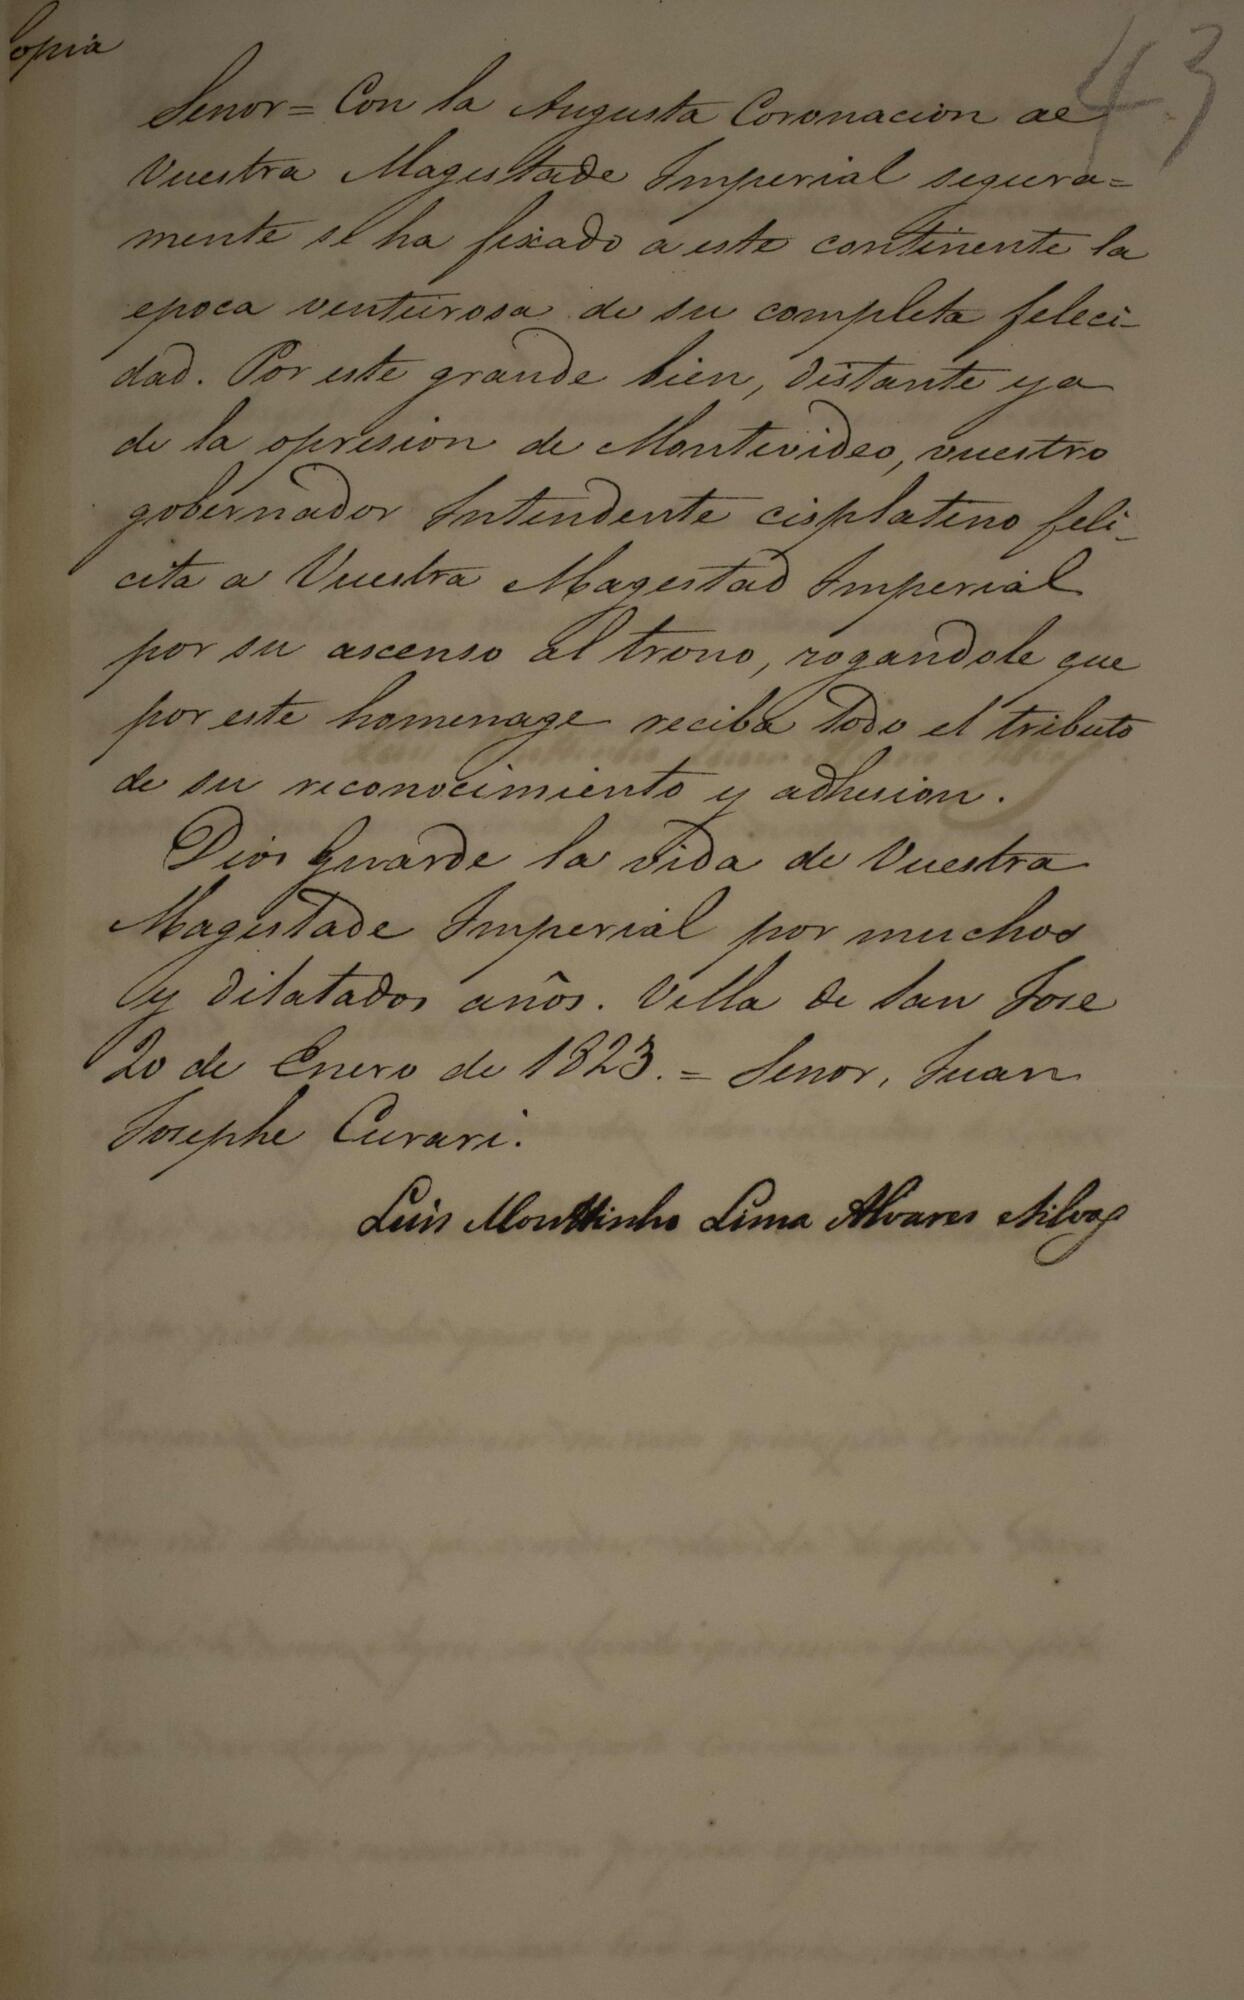 Copia
43
Senor = Con la Augusta Coronacion de
Vuestra Magestade Imperial segura=
mente se ha fixado a este continente la
epoca venturosa de su completa feleci-
dad. Por este grande bien, distante ya
de la opresion de Montevideo, vuestro
gobernador Intendente cisplatino feli-
cita a Vuestra Magestad Imperial
por su ascenso al trono, rogandole que
por este homenage reciba todo el tributo
de su reconocimiento y adhesion.
Dios Guarde la vida de Vuestra
Magestade Imperial por muchos
y dilatados años. Villa de San Jose
20 de Enero de 1823. = Senor, Juan
Josephe Curari.
Luis Mouttinho Lima Alvares eSilva